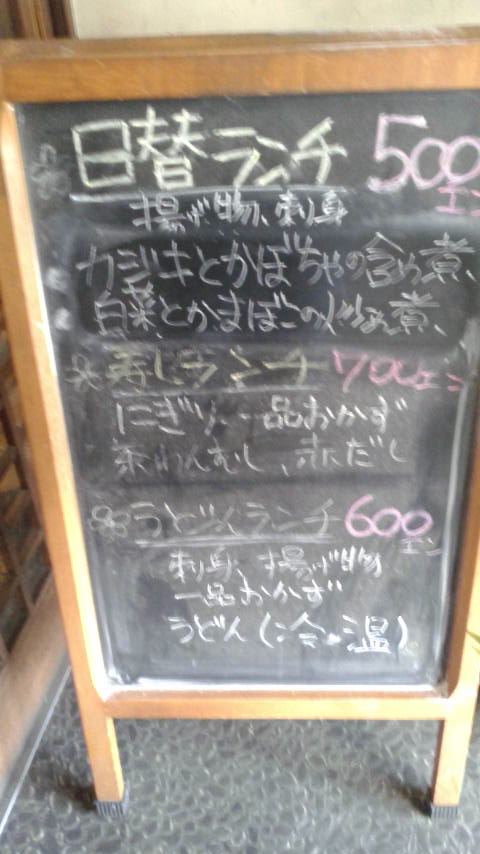 日替ランチ 500エン
揚げ物、刺身
カジキとかぼちゃの含め煮、
白菜とかまぼこの炒め煮、
寿しランチ 700エン
にぎり、一品おかず
茶わんむし、赤だし
うどんランチ 600エン
刺身、揚げ物
一品おかず
うどん(冷・温)